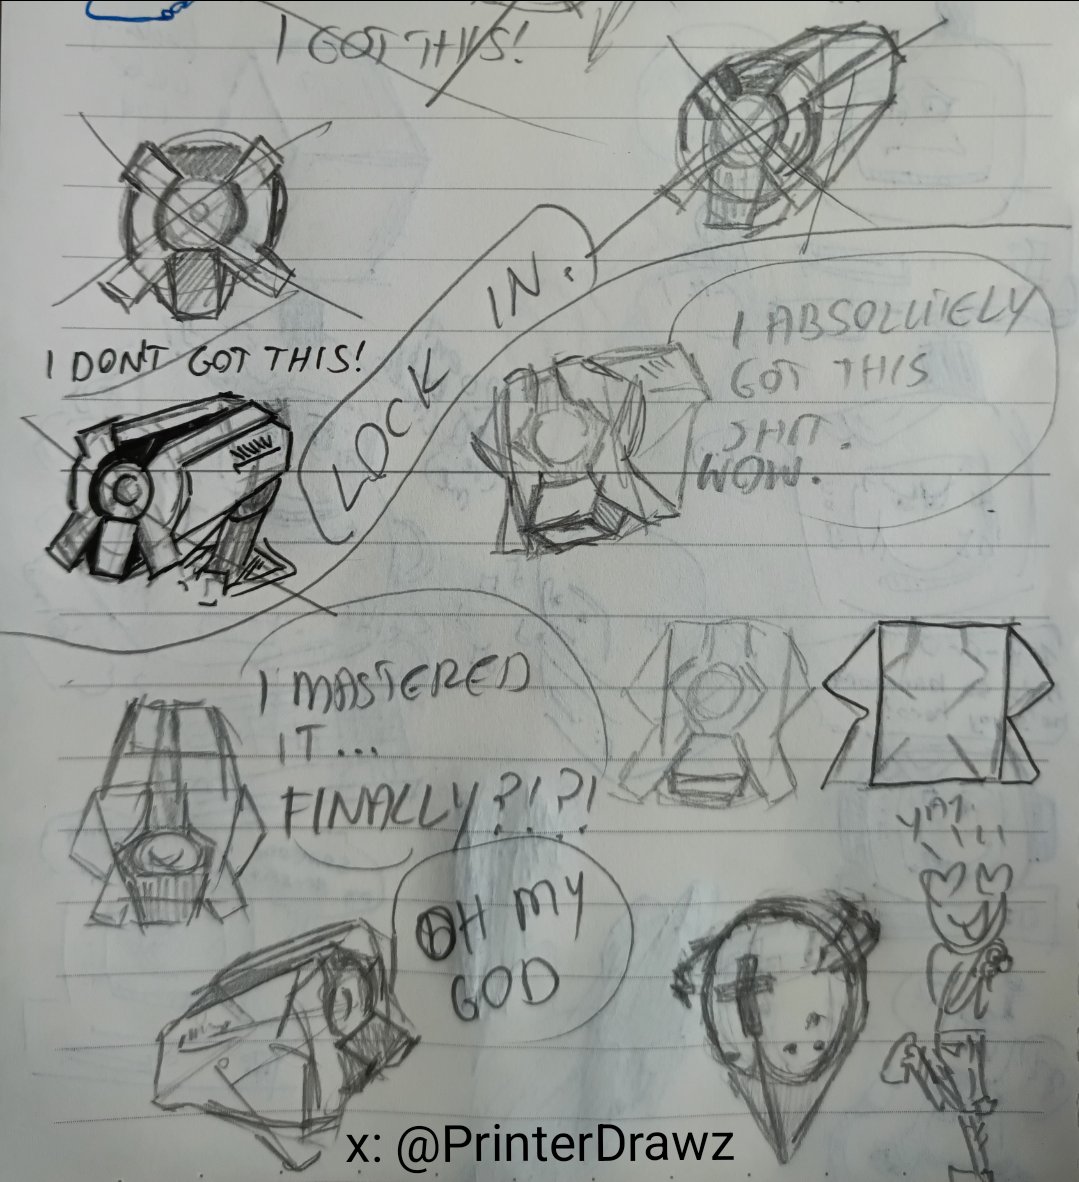 I GOT THIS!
I DON'T GOT THIS!
LOCK IN.
I ABSOLUTELY
GOT THIS
SHIT.
WOW.
I MASTERED
IT...
FINALLY?!?!
YAY!!!
OH MY
GOD
x: @PrinterDrawz